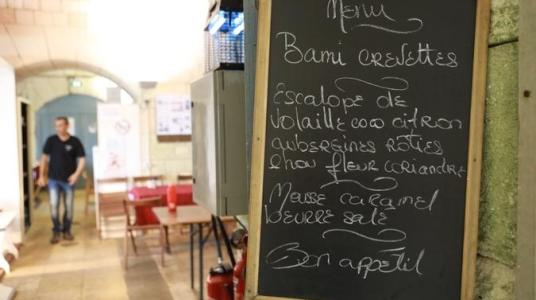 Menu
Bami crevettes
Escalope de
volaille coco citron
aubergines rôties
chou fleur coriandre
Mousse caramel
beurre salé
Bon appétit